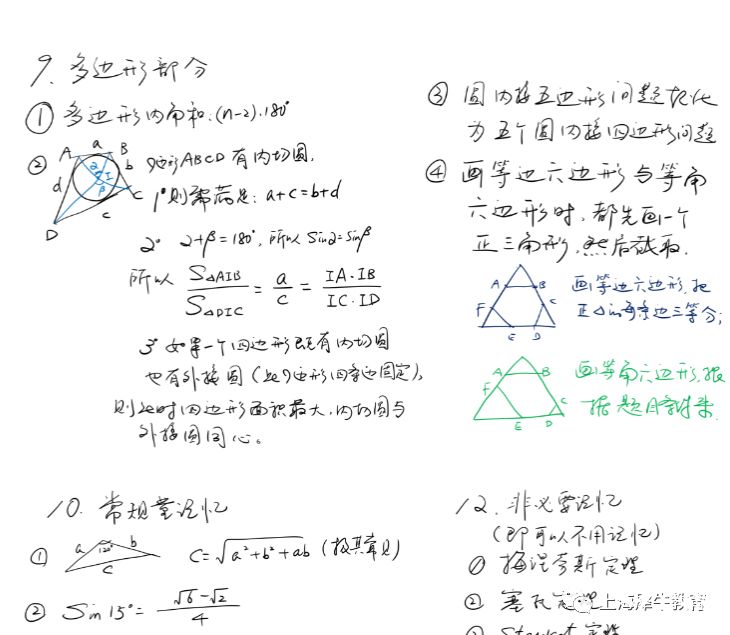 9. 多边形部分
① 多边形内角和:(n-2)·180°
② A a B b C c D d I α β
四边形ABCD有内切圆,
1°则需满足: a+c=b+d
2° α+β=180°, 所以 sinα=sinβ
所以 S△AIB/S△DIC = a/c = IA·IB/IC·ID
3° 如果一个四边形既有内切圆
也有外接圆(此四边形四条边固定),
则此时四边形面积最大,内切圆与
外接圆同心。
③ 圆内接五边形问题转化
为五个圆内接四边形问题
④ 画等边六边形与等角
六边形时,都先画一个
正三角形,然后截取.
A B C D E F
画等边六边形,把
正△的每条边三等分;
A B C D E F
画等角六边形,根
据题目
10. 常规量记忆
① a 120° b c C=√a²+b²+ab (极其常见)
② Sin 15°= √6-√2/4
12. 非必要记忆
(即可以不用记忆)
① 梅涅劳斯定理
② 塞瓦定理
Stewart 定理
上海犀牛教育